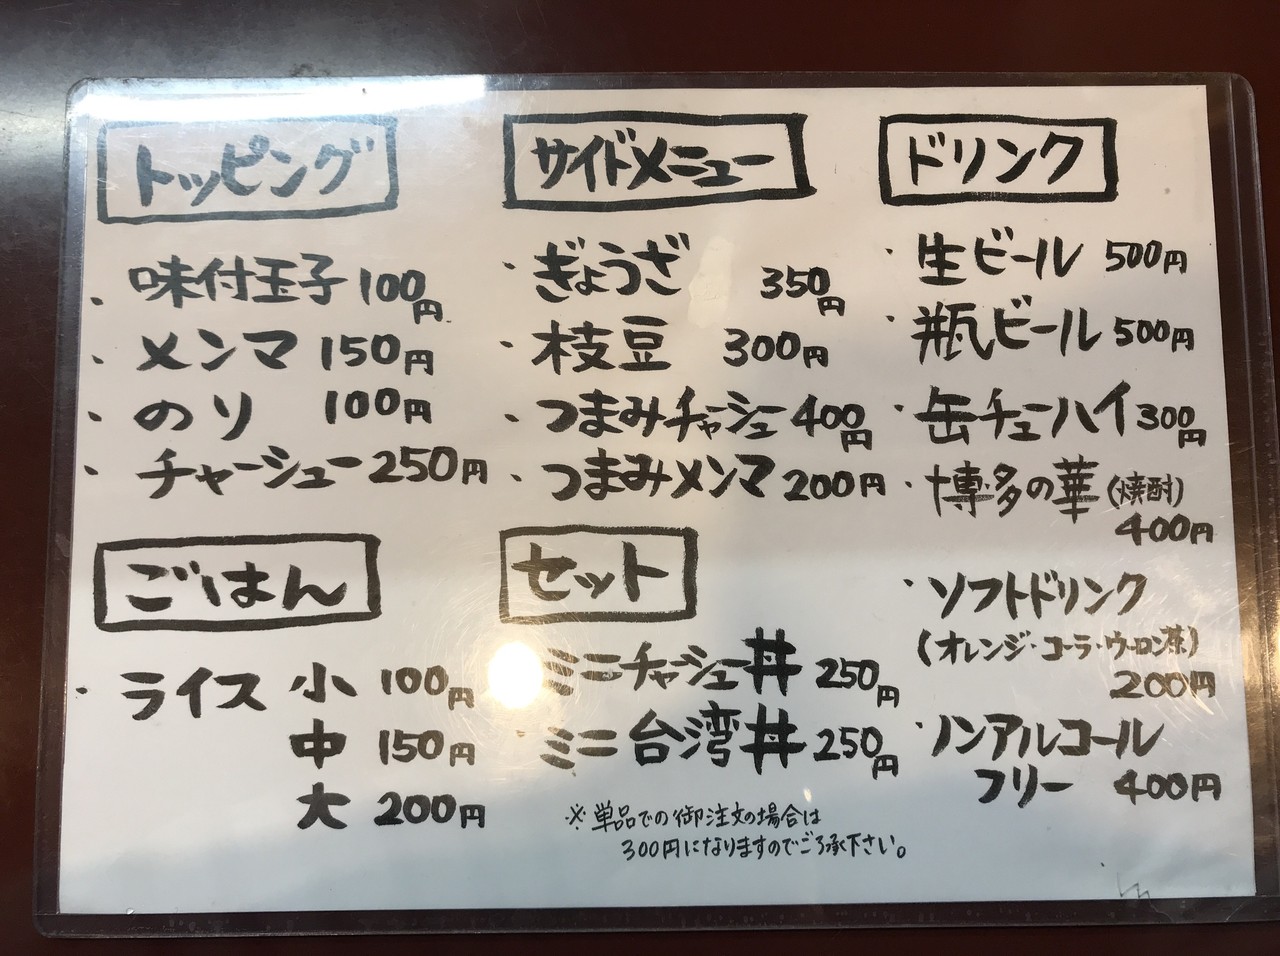 トッピング
・味付玉子 100円
・メンマ 150円
・のり 100円
・チャーシュー 250円
サイドメニュー
・ぎょうざ 350円
・枝豆 300円
・つまみチャーシュー 400円
・つまみメンマ 200円
ドリンク
・生ビール 500円
・瓶ビール 500円
・缶チューハイ 300円
・博多の華(焼酎)
400円
・ソフトドリンク
(オレンジ・コーラ・ウーロン茶)
200円
・ノンアルコール
フリー 400円
ごはん
・ライス 小 100円
中 150円
大 200円
セット
ミニチャーシュー丼 250円
・ミニ台湾丼 250円
※単品での御注文の場合は
300円になりますのでご了承下さい。